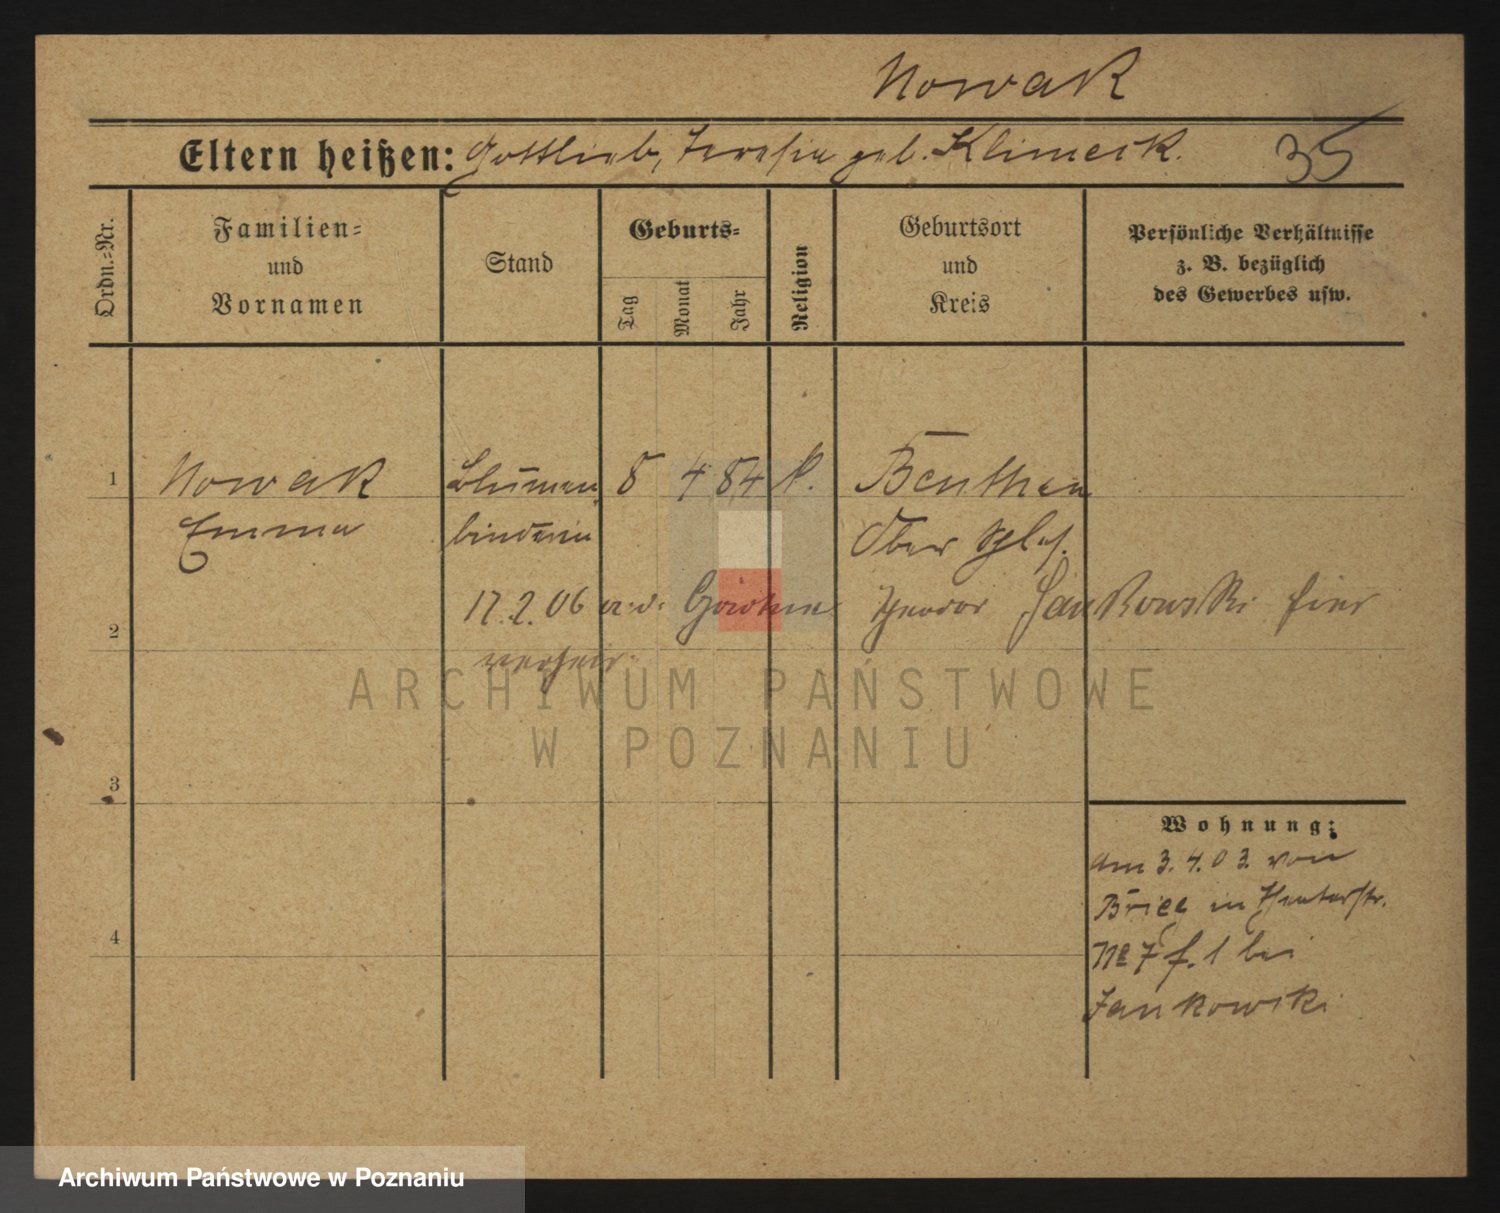 Nowak
Eltern heißen: Gottlieb, Teresia geb. Klimeck. 35
Ordn.-Nr.
Familien-
und
Vornamen
Stand
Geburts-
Tag
Monat
Jahr
Religion
Geburtsort
und
Kreis
Persönliche Verhältnisse
z. B. bezüglich
des Gewerbes usw.
1 Nowak Blumen 8 4 84 k. Beuthen
Emma binderin Ober Schles.
2 17.2.06 a.d. Theodor Jankowski hier
verheir.
ARCHIWUM PAŃSTWOWE
W POZNANIU
3
Wohnung:
am 3.4.03. von
Brieg in Theaterstr.
4 No 7 f. 1 bei
Jankowski
Archiwum Państwowe w Poznaniu